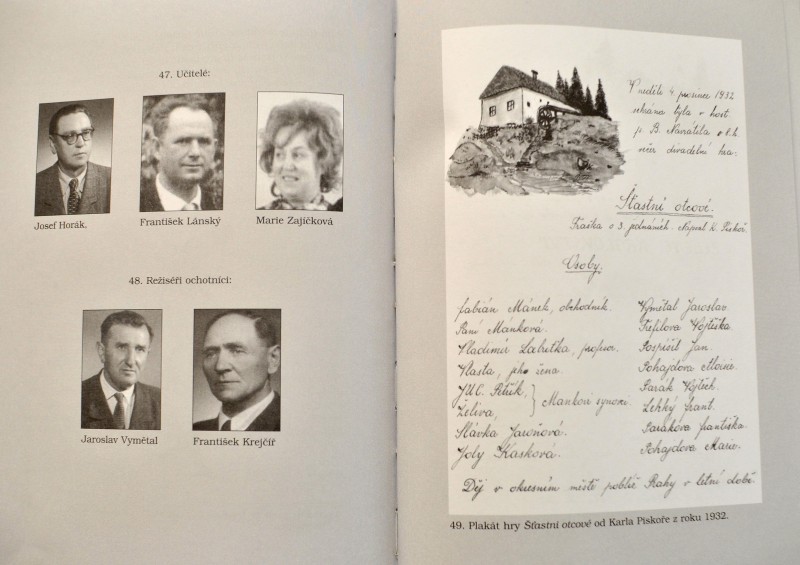 47. Učitelé:
Josef Horák,
František Lánský
Marie Zajíčková
48. Režiséři ochotníci:
Jaroslav Vymětal
František Krejčíř
V neděli 4 prosince 1932
sehrána byla v host.
p. B. Navrátila v 8. h.
večer divadelní hra:
Šťastní otcové.
Fraška o 3. jednáních. Napsal K. Piskoř.
Osoby.
Fabián Mánek, obchodník. Vymětal Jaroslav
Paní Mánková. Vojtěška
Vladimír Labutka, profesor. Pospíšil Jan.
Vlasta, jeho žena. Pohajdova
JUC. Petřík, Mankovi synové. Vojtěch.
Želiva, Lehký frant.
Slávka Jaroňová. františka.
Joly Kasková. Pohajdova Marie.
Děj v okresním městě poblíž Prahy v letní době.
49. Plakát hry Šťastní otcové od Karla Piskoře z roku 1932.